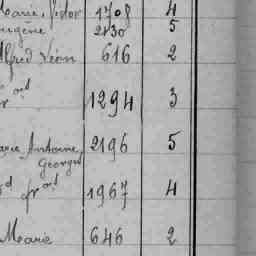 Marie, Victor 1708 4
Eugène 2130 5
Alfred Léon 616 2
ont
fr 1294 3
Marie Antoine, 2196 5
Georges
d fr ont 1967 4
Marie 646 2